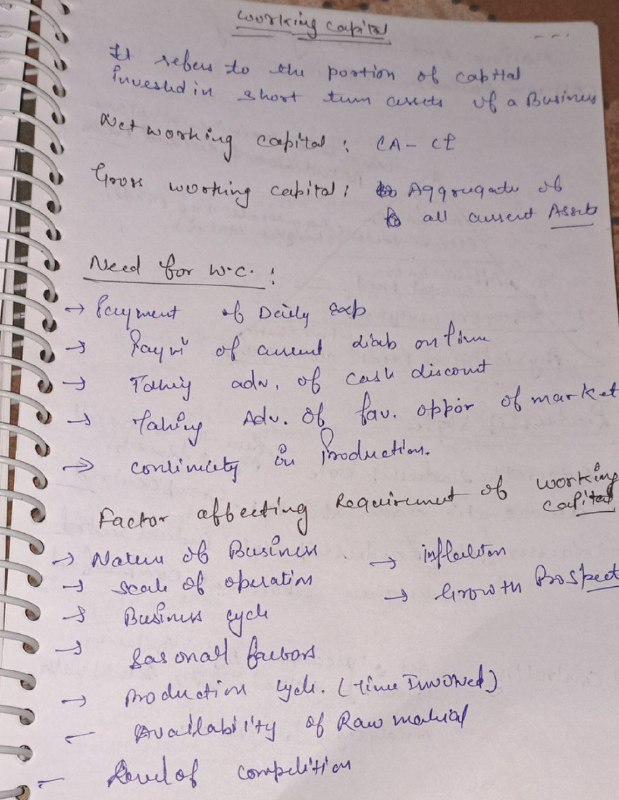 Working Capital
It refers to the portion of capital
invested in short term assets of a Business
Net working capital : CA - CL
Gross working capital : Aggregate of
all current Assets
Need for W.C. :
→ Payment of Daily exp
→ Paym of current liab on time
→ Taking adv. of cash discount
→ Taking Adv. of fav. oppor of market
→ continuity in Production.
Factor affecting Requirement of working
capital
→ Nature of Business
→ inflation
→ Scale of operation
→ Growth Prospect
→ Business cycle
→ Sasonall factors
→ Production cycle. (Time Involved)
- Availability of Raw material
- Level of competition